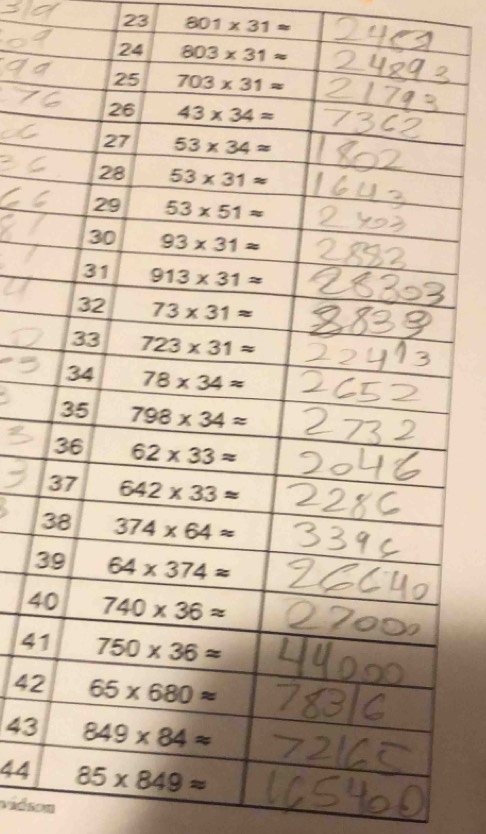 23 801 x 31 ≈
24 803 x 31 ≈ 24893
25 703 x 31 ≈ 21793
26 43 x 34 ≈ 7362
27 53 x 34 ≈ 1802
28 53 x 31 ≈ 1643
29 53 x 51 ≈
30 93 x 31 ≈ 2883
31 913 x 31 ≈ 28303
32 73 x 31 ≈
33 723 x 31 ≈ 22413
34 78 x 34 ≈ 2652
35 798 x 34 ≈ 2732
36 62 x 33 ≈ 2046
37 642 x 33 ≈ 2286
38 374 x 64 ≈ 3396
39 64 x 374 ≈ 26640
40 740 x 36 ≈ 27000
41 750 x 36 ≈ 44000
42 65 x 680 ≈ 78316
43 849 x 84 ≈ 72165
44 85 x 849 ≈ 165400
vidson